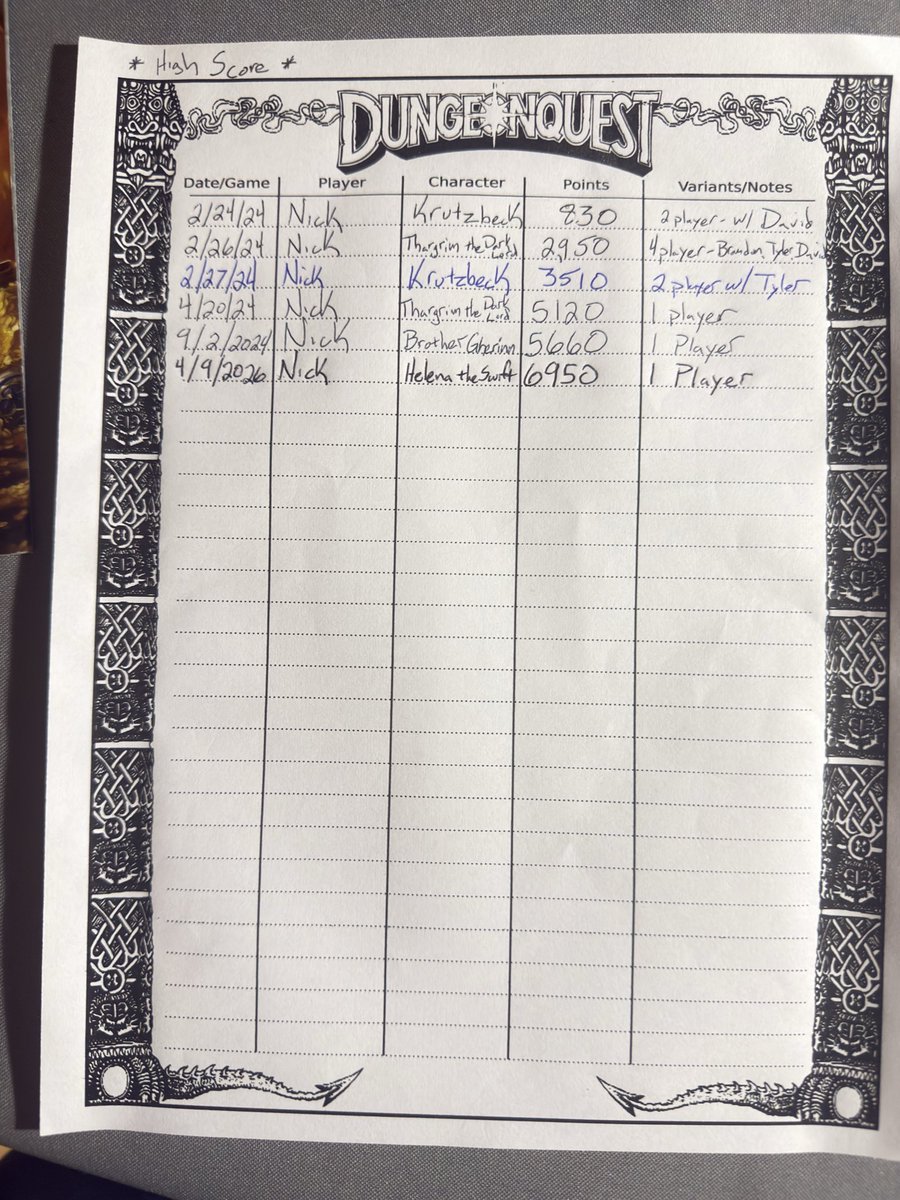 * High Score *
DUNGEONQUEST
Date/Game Player Character Points Variants/Notes
2/24/24 Nick Krutzbeck 830 2 player - w/ David
2/26/24 Nick Thargrim the Dark Lord 2950 4 player - Brandon, Tyler, David
2/27/24 Nick Krutzbeck 3510 2 player w/ Tyler
4/20/24 Nick Thargrim the Dark Lord 5120 1 player
9/2/2024 Nick Brother Gherinn 5660 1 Player
4/9/2026 Nick Helena the Swift 6950 1 Player